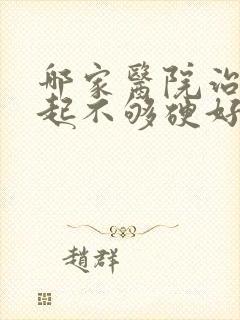 哪家醫院治
起不够硬好
趙群